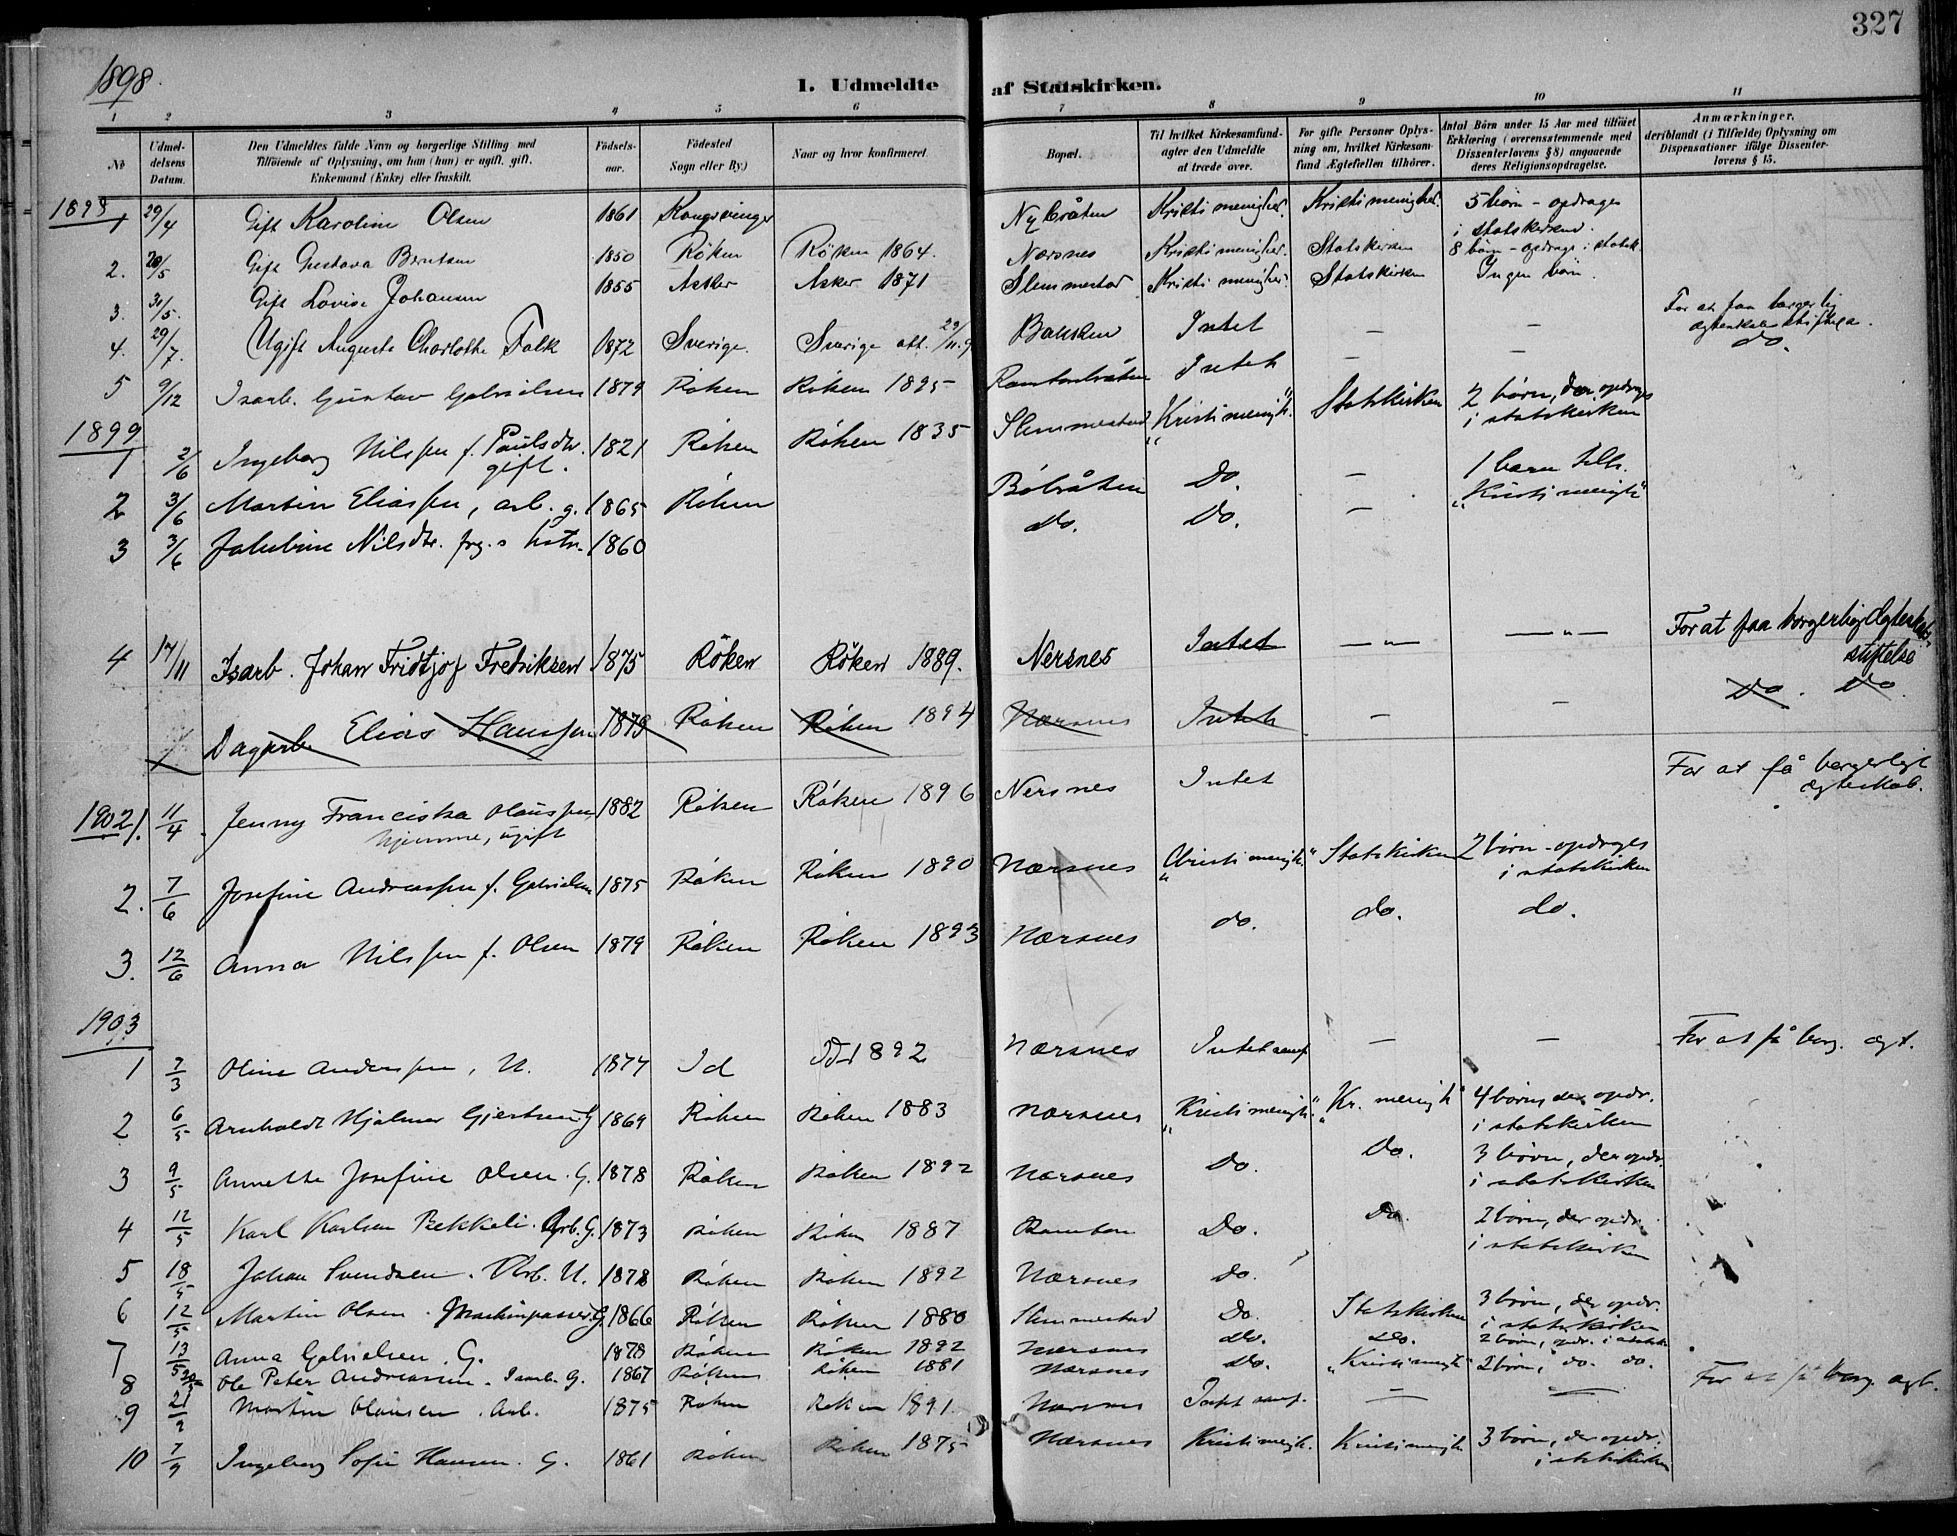 327
1898.
1. Udmeldte af Statskirken.
1 2 3 4 5 6 7 8 9 10 11
No
Udmeldelsens Datum.
Den Udmeldtes fulde Navn og borgerlige Stilling med Tilføiende af Oplysning, om han (hun) er ugift, gift, Enkemand (Enke) eller fraskilt.
Fødselsaar.
Fødested Sogn eller By.)
Naar og hvor konfirmeret.
Bopæl.
Til hvilket Kirkesamfund agter den Udmeldte at træde over.
For gifte Personer Oplysning om, hvilket Kirkesamfund Ægtefællen tilhører.
Antal Børn under 15 Aar med tilføiet Erklæring (overensstemmende med Dissenterlovens § 8) angaaende deres Religionsopdragelse.
Anmærkninger, deriblandt (i Tilfælde) Oplysning om Dispensationer ifølge Dissenterlovens § 15.
1898
1 29/4 Gift Karoline Olsen 1861 Kongsvinger Nybråten Kristi menighet. Kristi menighet. 5 børn - opdrages i statskirken.
2. 28/5 Gift Gustava Berntsen 1850 Røken Røken 1864. Nærsnes Kristi menighet. Statskirken 8 børn - opdrages i statsk.
3. 31/5. Gift Lovise Johansen 1855 Asker Asker 1871 Slemmestad Kristi menighet. Statskirken Ingen børn
4. 29/7. Ugift Augusta Charlotthe Falk 1872 Sverige. Sverige att. Intet — — For at faa borgerlig ægteskab stiftet.
5 9/12 Isarb. Gustav Gabrielsen 1879 Røken Røken 1895 Intet — — do.
1899
1 2/6 Ingeborg Nilssen f. Paulsdtr. gift. 1821 Røken Røken 1835 Slemmestad "Kristi menigh." Statskirken 2 børn, der opdrages i statskirken
2 3/6 Martin Eliassen, arb. g. 1865 Røken Bøbråten Do. — 1 barn tilh. "Kristi menigh"
3 3/6 Jakobine Nilsdtr. frg.s hstr. 1860 do. Do. —
4 17/11 Isarb. Johan Fridtjof Fredriksen 1875 Røken Røken 1889. Nersnes Intet — " — — " — For at faa borgerlig Ægteskabsstiftelse
Dagarb. Elias Hanssen 1879 Røken Røken 1894 Nærsnes Intet — — Do. Do.
1902
1. 11/4 Jenny Franciska Olaussen hjemme, ugift 1882 Røken Røken 1896 Nersnes Intet For at få borgerligt ægteskab.
2. 7/6 Josefine Andreassen f. Gabrielsen 1875 Røken Røken 1890 Nærsnes "Kristi menigh" Statskirken 2 børn - opdrages i statskirken
3. 12/6 Anna Nilssen f. Olsen 1879 Røken Røken 1893 Nærsnes do. do. do.
1903
1 7/3 Oline Anderssen, U. 1877 Id Id 1892 Nærsnes Intet samf. — — For at få borg. ægt.
2 6/5 Arnholdt Hjalmar Gjertsen G 1869 Røken Røken 1883 Nærsnes "Kristi menigh." "Kr. menigh" 4 børn, der opdr. i statskirken
3 9/5 Annette Josefine Olsen. G. 1878 Røken Røken 1892 Nærsnes Do. Do. 3 børn, der opdr. i statskirken
4 12/5 Karl Karlsen Bekkeli. Arb. G. 1873 Røken Røken 1887 Ramton Do. Do. 2 børn, der opdr. i statskirken
5 18/5 Johan Svendsen. Arb. U. 1878 Røken Røken 1892 Nærsnes Do.
6 12/5 Martin Olsen. Maskinpasser. G. 1866 Røken Røken 1880 Slemmestad Do. Statskirken 3 børn, der opdr. i statskirken
7 13/5 Anna Gabrielsen. G. 1878 Røken Røken 1892 Nærsnes Do. Do. 2 børn, opdr. i statsk
8 Ole Peter Andreassen. Isarb. G. 1867 Røken Røken 1881 Nærsnes Do. "Kristi menigh" 2 børn, do. do.
9 21/9 Martin Olausen. Arb. 1875 Røken Røken 1891. Nærsnes Intet samf. — — For at få borg. ægt.
10 7/9 Ingeborg Sofie Hansen. G. 1861 Røken Røken 1875 Nærsnes Kristi menigh. Kristi menigh 3 børn, der opdr. i statskirken